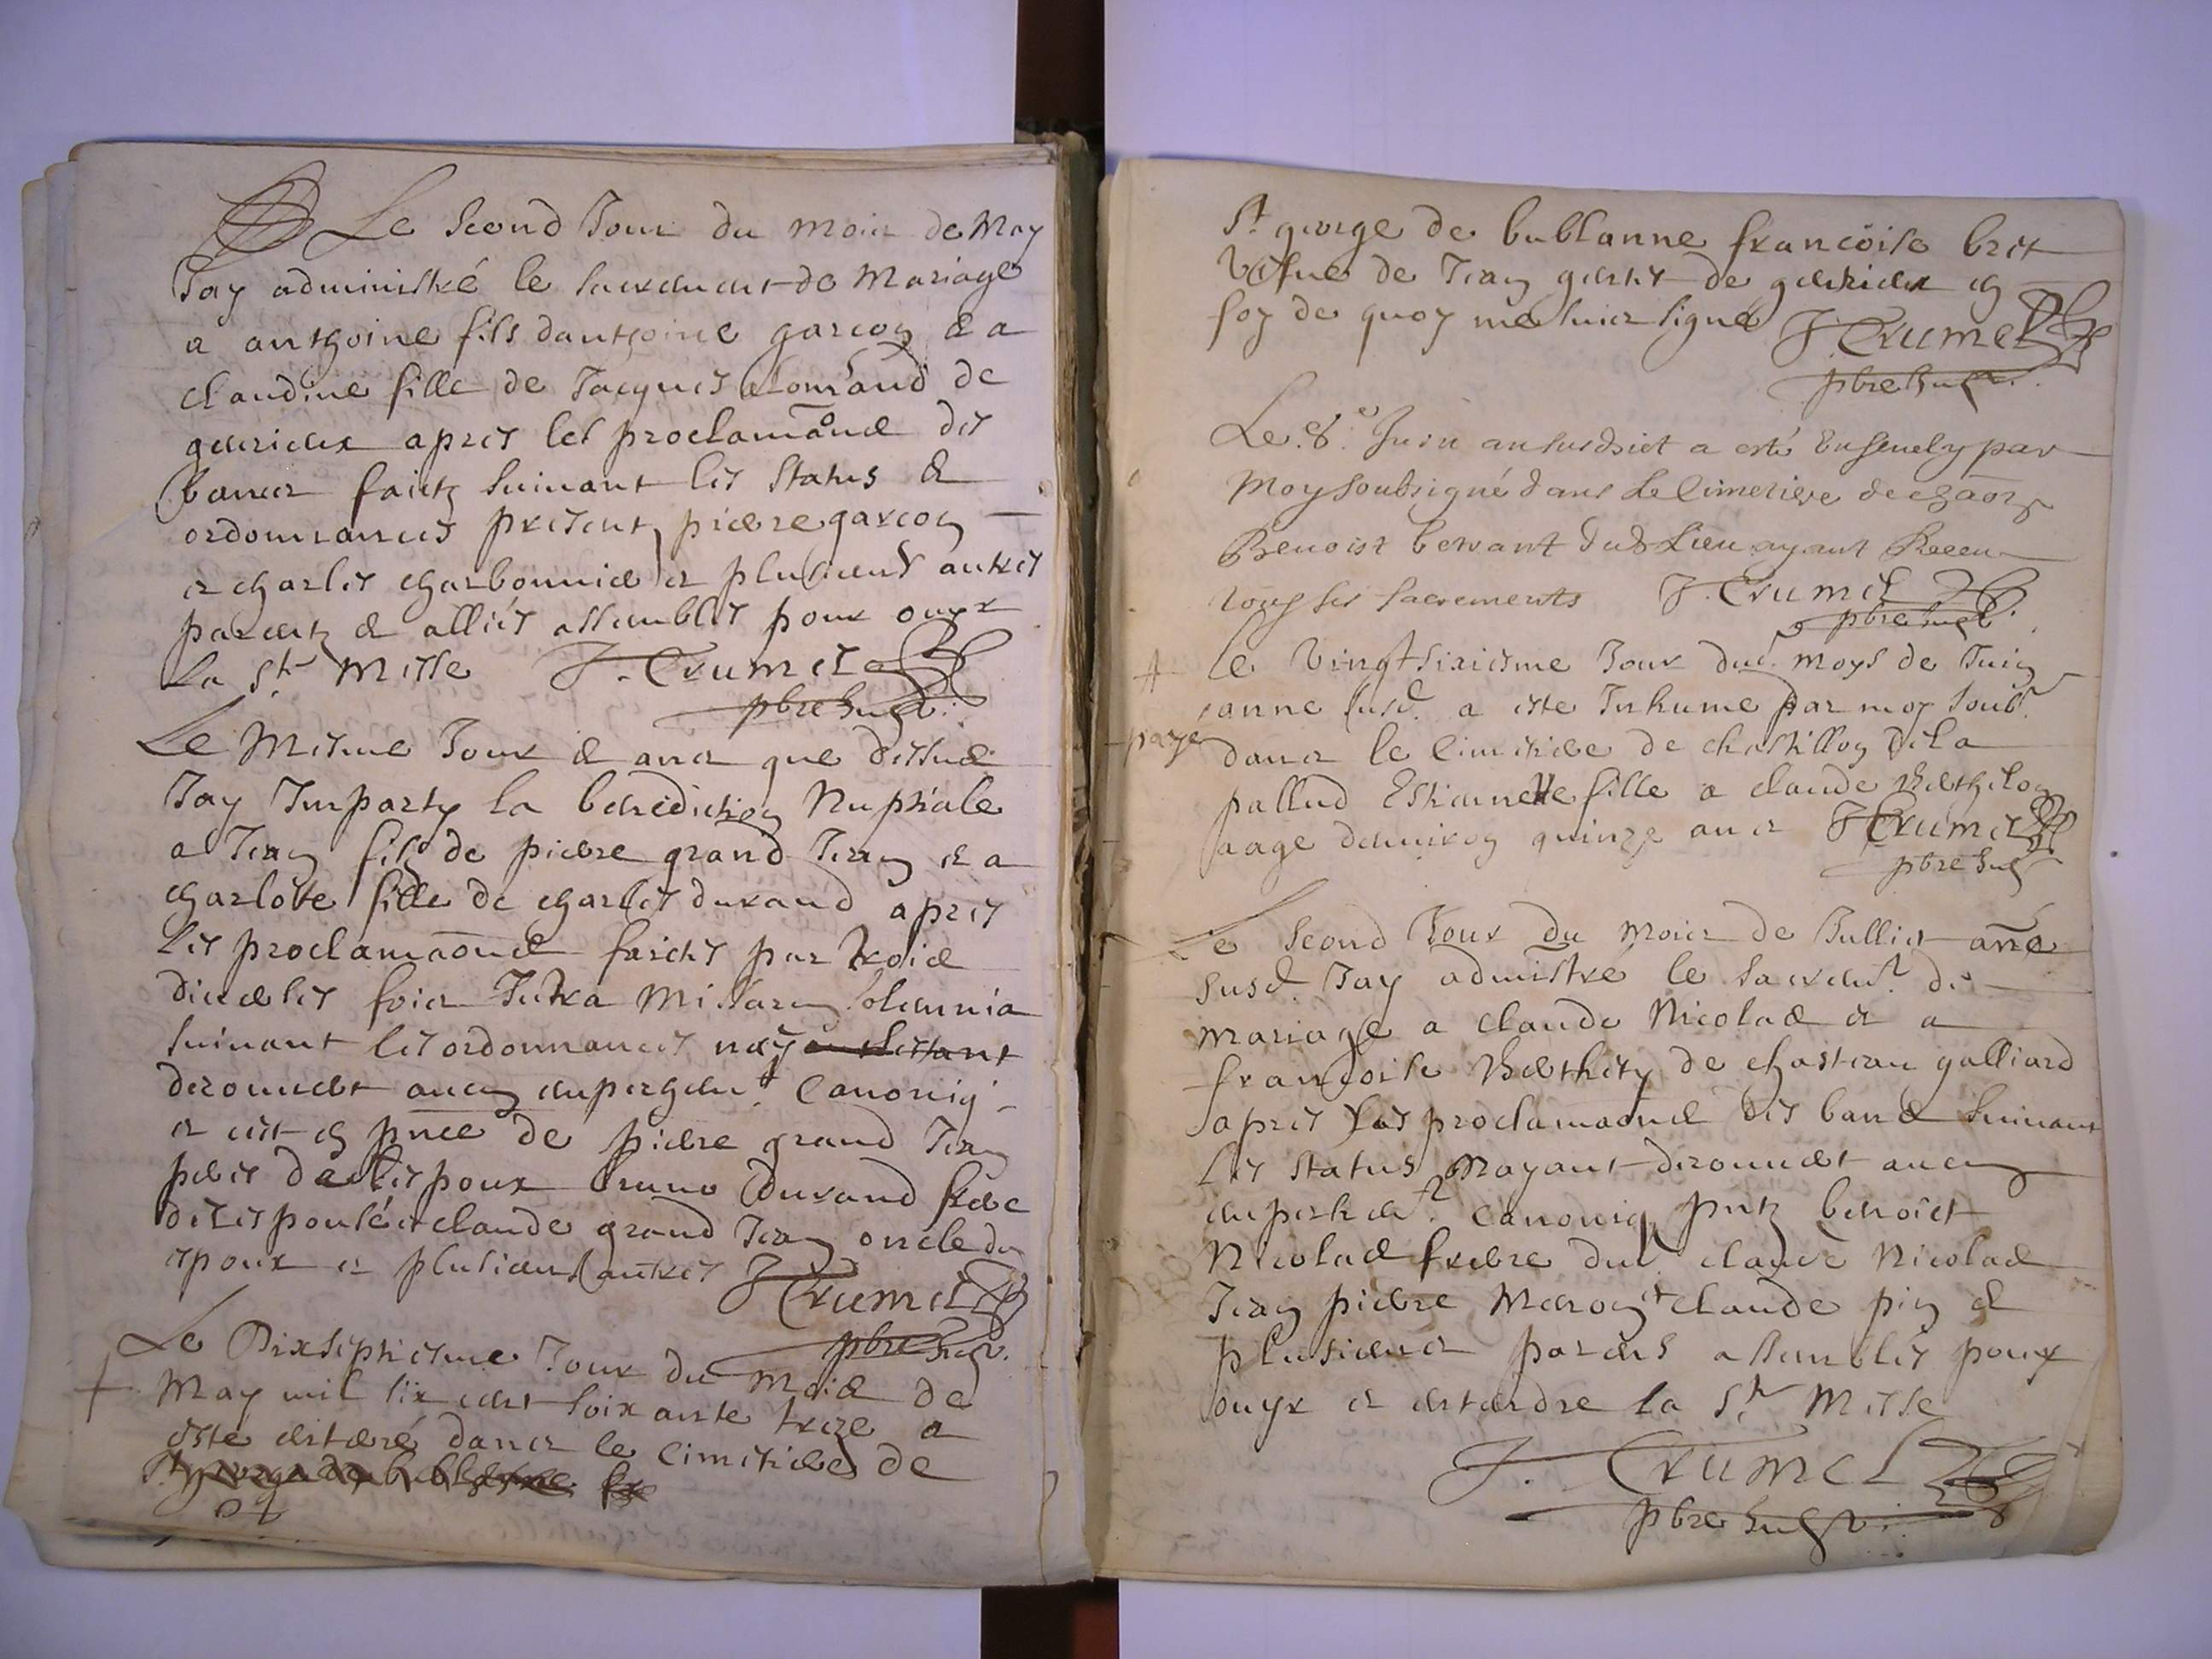 Le second Jour du mois de May
Jay administré le sacrement de Mariage
a anthoine fils danthoine garcon & a
claudine fille de Jacques de
gevrieux apres les proclamaõns des
bancs faictz suivant les status &
ordonnances present pierre garcon
et charles charbonnier et plusieurs autres
parentz & alliés assembles pour ouyr
la Ste Messe J. Crumel
pbre
Le Mesme Jour & ans que dessus
Jay Imparty la benediction Nuptiale
a Jean fils de pierre grand Jean et a
charlote fille de charles durand apres
les proclamaõns faictes par trois
divers fois Intra Missarum solemnia
suivant les ordonnances nay
decouvert aucun empeschemt. Canoniq
et cest en pñce de pierre grand Jean
pere de lespoux bruno durand frere
de lespousée et claude grand Jean oncle du
espoux et plusieurs autres J Crumel
pbre
Le Dixseptiesme Jour du mois de
May mil six cent soixante treze a
este enterré dans le cimetiere de
St george de bublanne francoise bret
vefue de Jean de gevrieux en
foy de quoy me suis signé J Crumel
pbre
Le 8e Juin an susdict a esté Ensevely par
Moy soubsigné dans Le Cimetiere de
Benoist bervant dud Lieu ayant Receu
tous ses sacrements J. Crumel
pbre
le vingtsixiesme Jour dud. moys de Juin
anne susd. a este Inhume par moy soub.
paye
dans le Cimetiere de chastillon de la
pallud Estiennette fille a claude Berthelon
aage denviron quinze ans J Crumel
pbre
Le second Jour du mois de Jullet anñe
susd. Jay admistré le sacremt. de
mariage a claude Nicolas et a
francoise de chasteau galliard
apres les proclamaõns des bans suivant
les status Nayant decouvert aucun
empeschemt. canoniq pntz benoict
Nicolas frere dud. claude Nicolas
Jean pierre et claude pin &
plusieurs parens assembles pour
ouyr et entendre la Ste Messe
J. Crumel
pbre